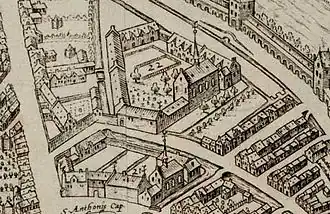 2
S. Anthonis Cap